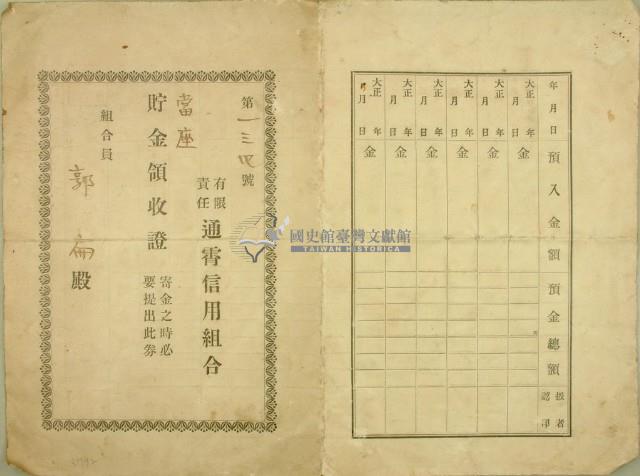 年月日 預入金額 預金總額 扱者認印
大正 年 月 日 金
大正 年 月 日 金
大正 年 月 日 金
大正 年 月 日 金
大正 年 月 日 金
大正 年 月 日 金
第一三四號
有限責任 通霄信用組合
當座
貯金領收證 寄金之時必要提出此券
組合員
郭 殿
國史館臺灣文獻館
TAIWAN HISTORICA